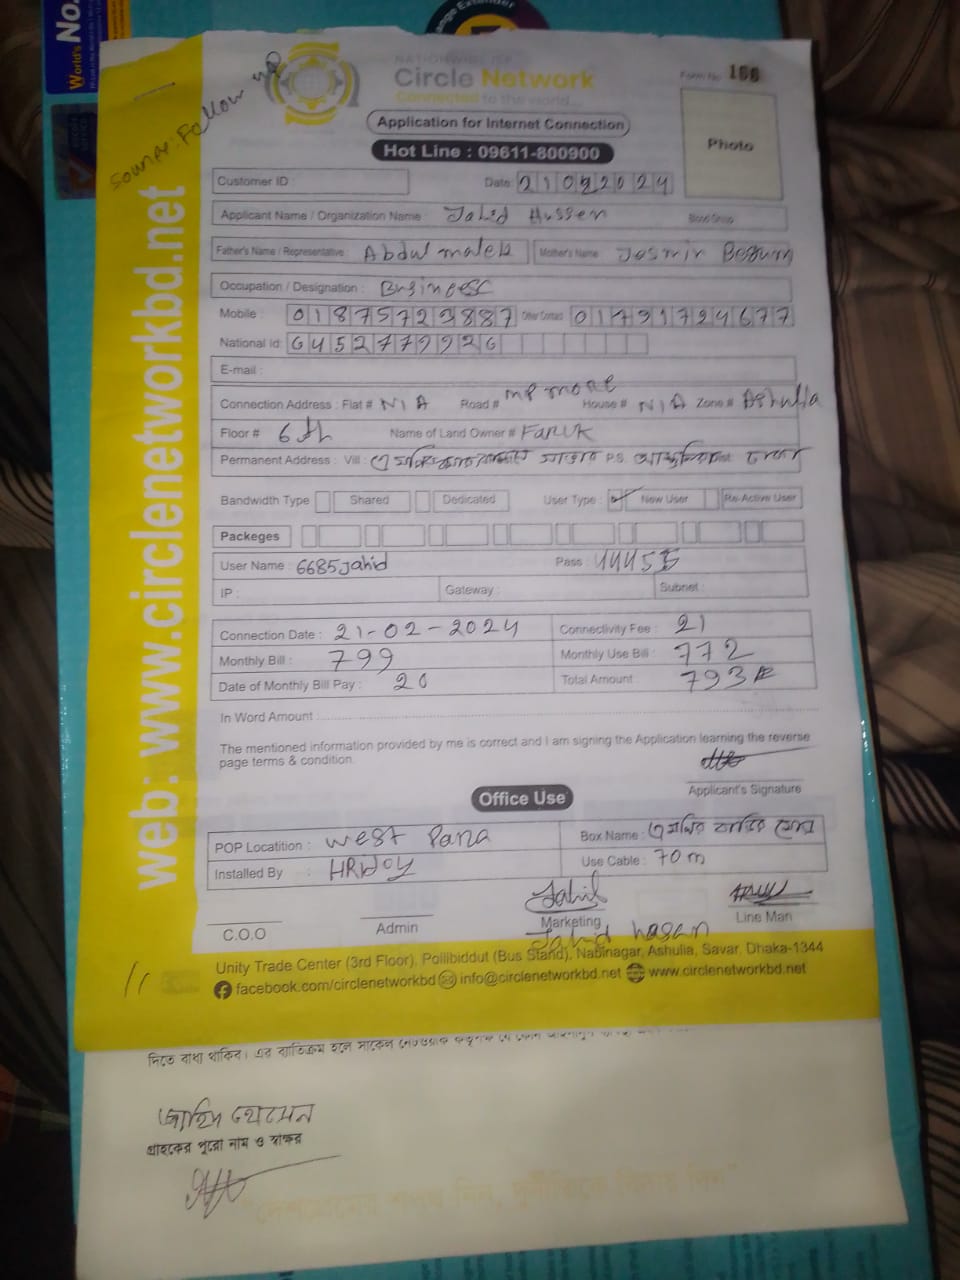 World's No.
nge Extender
Source: Follow
web: www.circlenetworkbd.net
NATIONWIDE ISP
Circle Network
Connected to the world...
Form No 166
Application for Internet Connection
Hot Line : 09611-800900
Photo
Customer ID :
Date: 21022024
Applicant Name / Organization Name : Jahid Hussen Blood Group
Father's Name / Representative : Abdul malek Mother's Name Jesmin Begum
Occupation / Designation : Businessc
Mobile : 01875729887 Other Contact 01791724677
National Id: 6452779926
E-mail :
Connection Address : Flat # N/A Road # MP more House # N/A Zone # Ashulia
Floor # 6th Name of Land Owner # Faruk
Permanent Address : Vill : সাভার P.S. Dist ঢাকা
Bandwidth Type Shared Dedicated User Type : New User Re-Active User
Packeges
User Name : 6685jahid Pass : 44455
IP : Gateway : Subnet :
Connection Date : 21-02-2024 Connectivity Fee : 21
Monthly Bill : 799 Monthly Use Bill : 772
Date of Monthly Bill Pay : 20 Total Amount : 793
In Word Amount :
The mentioned information provided by me is correct and I am signing the Application learning the reverse
page terms & condition.
Applicant's Signature
Office Use
POP Locatition : west Para Box Name :
Installed By : HRIDOY Use Cable : 70 m
C.O.O Admin Marketing Line Man
Jahid hasan
Unity Trade Center (3rd Floor), Pollibiddut (Bus Stand), Nabinagar, Ashulia, Savar, Dhaka-1344
facebook.com/circlenetworkbd info@circlenetworkbd.net www.circlenetworkbd.net
দিতে বাধ্য থাকিব। এর ব্যতিক্রম হলে সার্কেল নেটওয়ার্ক কর্তৃপক্ষ যে কোন
জাহিদ হোসেন
গ্রাহকের পুরো নাম ও স্বাক্ষর